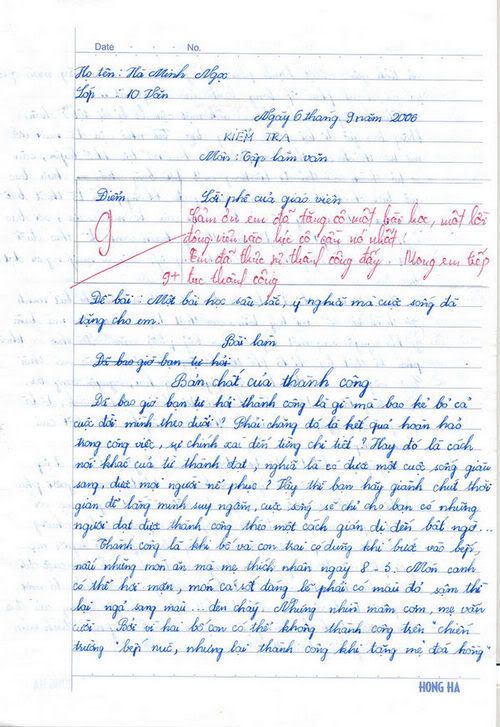 Date No.
Họ tên : Hà Minh Ngọc
Lớp : 10 Văn
Ngày 6 tháng 9 năm 2006
KIỂM TRA
Môn : Tập làm văn
Điểm
Lời phê của giáo viên
9
Cảm ơn em đã tặng cô một bài học, một lời
động viên vào lúc cô cần nó nhất!
Em đã thực sự thành công đấy. Mong em tiếp
9+ tục thành công
Đề bài : Một bài học sâu sắc, ý nghĩa mà cuộc sống đã
tặng cho em.
Bài làm
Đã bao giờ bạn tự hỏi
Bản chất của thành công
Đã bao giờ bạn tự hỏi thành công là gì mà bao kẻ bỏ cả
cuộc đời mình theo đuổi? Phải chăng đó là kết quả hoàn hảo
trong công việc, sự chính xác đến từng chi tiết? Hay đó là cách
nói khác của từ thành đạt, nghĩa là có được một cuộc sống giàu
sang, được mọi người nể phục? Vậy thì bạn hãy giành chút thời
gian để lắng mình suy ngẫm, cuộc sống sẽ chỉ cho bạn có những
người đạt được thành công theo một cách giản dị đến bất ngờ...
Thành công là khi bố và con trai có dũng khí bước vào bếp,
nấu những món ăn mà mẹ thích nhân ngày 8-3. Món canh
có thể hơi mặn, món cá sốt đáng lẽ phải có màu đỏ sậm thì
lại ngả sang màu... đen cháy. Nhưng nhìn mâm cơm, mẹ vẫn
cười. Bởi vì hai bố con có thể không thành công trên "chiến
trường" bếp núc, nhưng lại thành công khi tặng mẹ "đoá hồng"
HONG HA